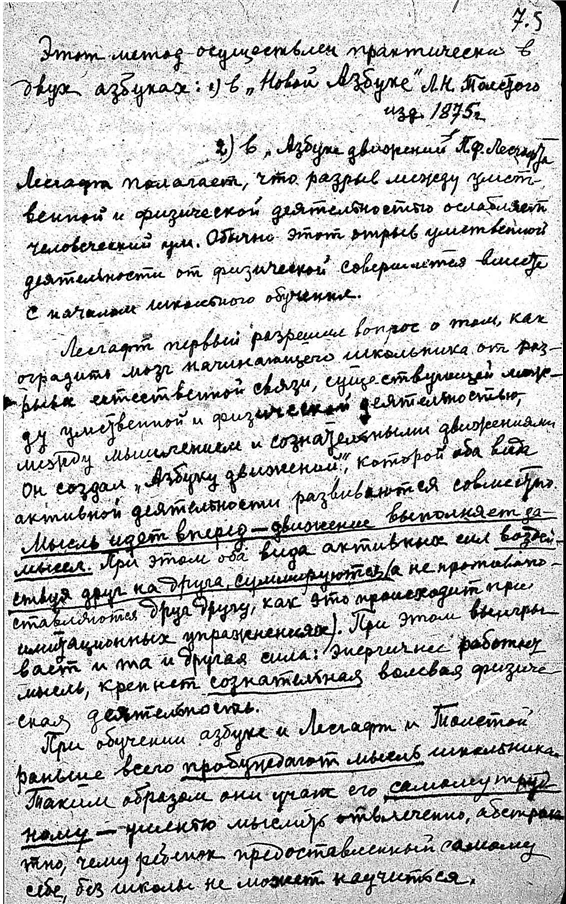 7.5
Этот метод осуществлен практически в
двух азбуках: 1) в „Новой Азбуке" Л.Н. Толстого
изд. 1875г
2) в „Азбуке движений" П.Ф. Лесгафта
Лесгафт полагает, что разрыв между умст-
венной и физической деятельностью ослабляет
человеческий ум. Обычно этот отрыв умственной
деятельности от физической совершается вместе
с началом школьного обучения.
Лесгафт первый разрешил вопрос о том, как
оградить мозг начинающего школьника от раз-
рыва естественной связи, существующей меж-
ду умственной и физической деятельностью,
между мышлением и сознательными движениями
Он создал „Азбуку движений", которой оба вида
активной деятельности развиваются совместно.
Мысль идет вперед — движение выполняет за-
мысел. При этом оба вида активных сил воздей-
ствуя друг на друга, суммируются (а не противопо-
ставляются друг другу, как это происходит при
имитационных упражнениях). При этом выигры
вает и та и другая сила: энергичнее работает
мысль, крепнет сознательная волевая физиче
-ская деятельность.
При обучении азбуке и Лесгафт и Толстой
раньше всего пробуждают мысль школьника.
Таким образом они учат его самому труд
ному — умению мыслить отвлеченно, абстрак
тно, чему ребенок предоставленный самому
себе, без школы не может научиться.